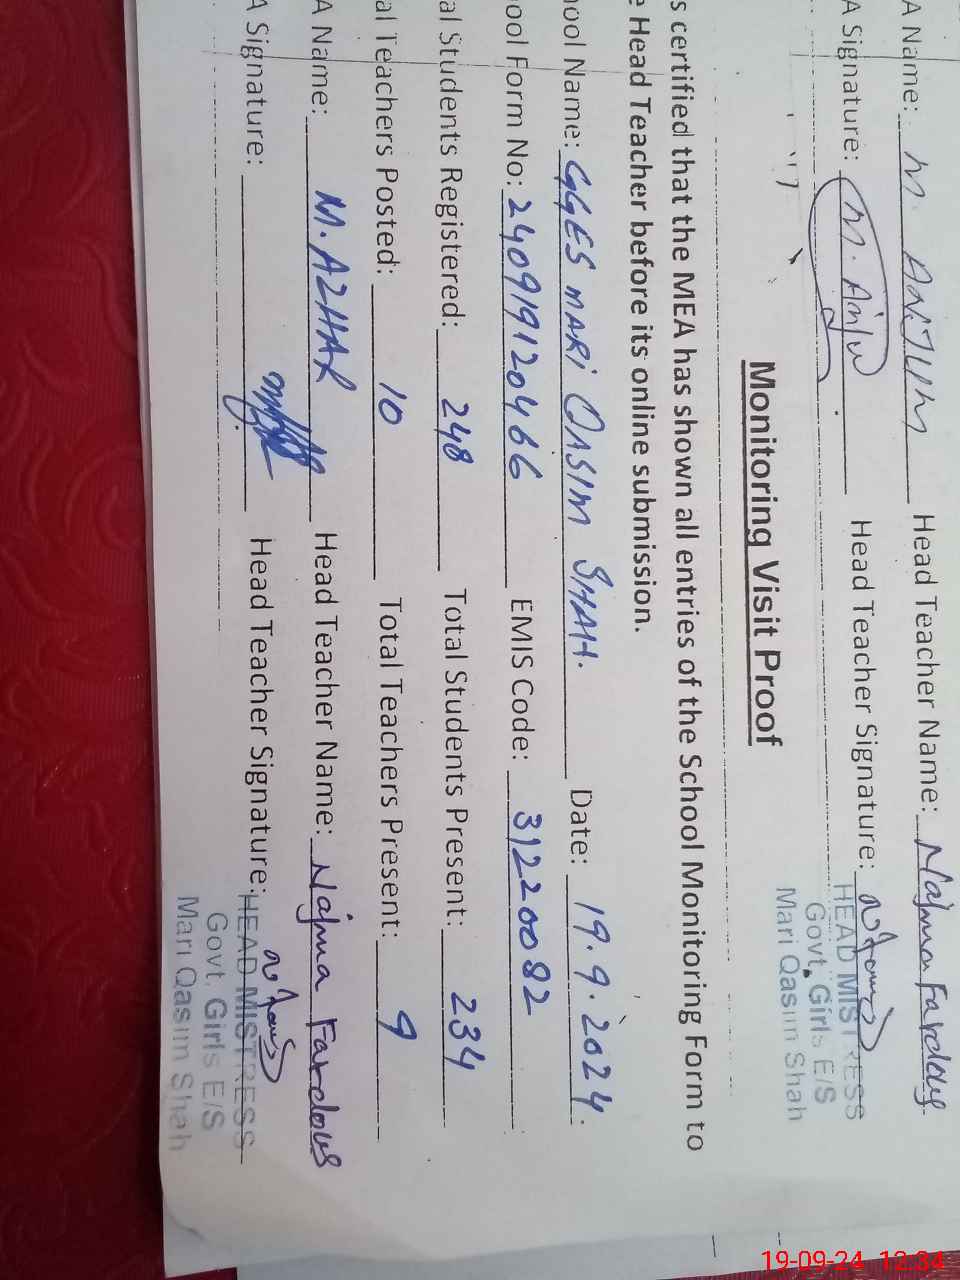 A Name: M. ANJUM Head Teacher Name: Najma Fardous
A Signature: M. Anju Head Teacher Signature:
HEAD MISTRESS
Govt. Girls E/S
Mari Qasim Shah
Monitoring Visit Proof
s certified that the MEA has shown all entries of the School Monitoring Form to
e Head Teacher before its online submission.
hool Name: GGES MARI QASIM SHAH. Date: 19.9.2024.
ool Form No: 240919120466 EMIS Code: 31220082
al Students Registered: 248 Total Students Present: 234
al Teachers Posted: 10 Total Teachers Present: 9
A Name: M. AZHAR Head Teacher Name: Najma Fardous
A Signature: Head Teacher Signature:
HEAD MISTRESS
Govt. Girls E/S
Mari Qasim Shah
19-09-24 12:34